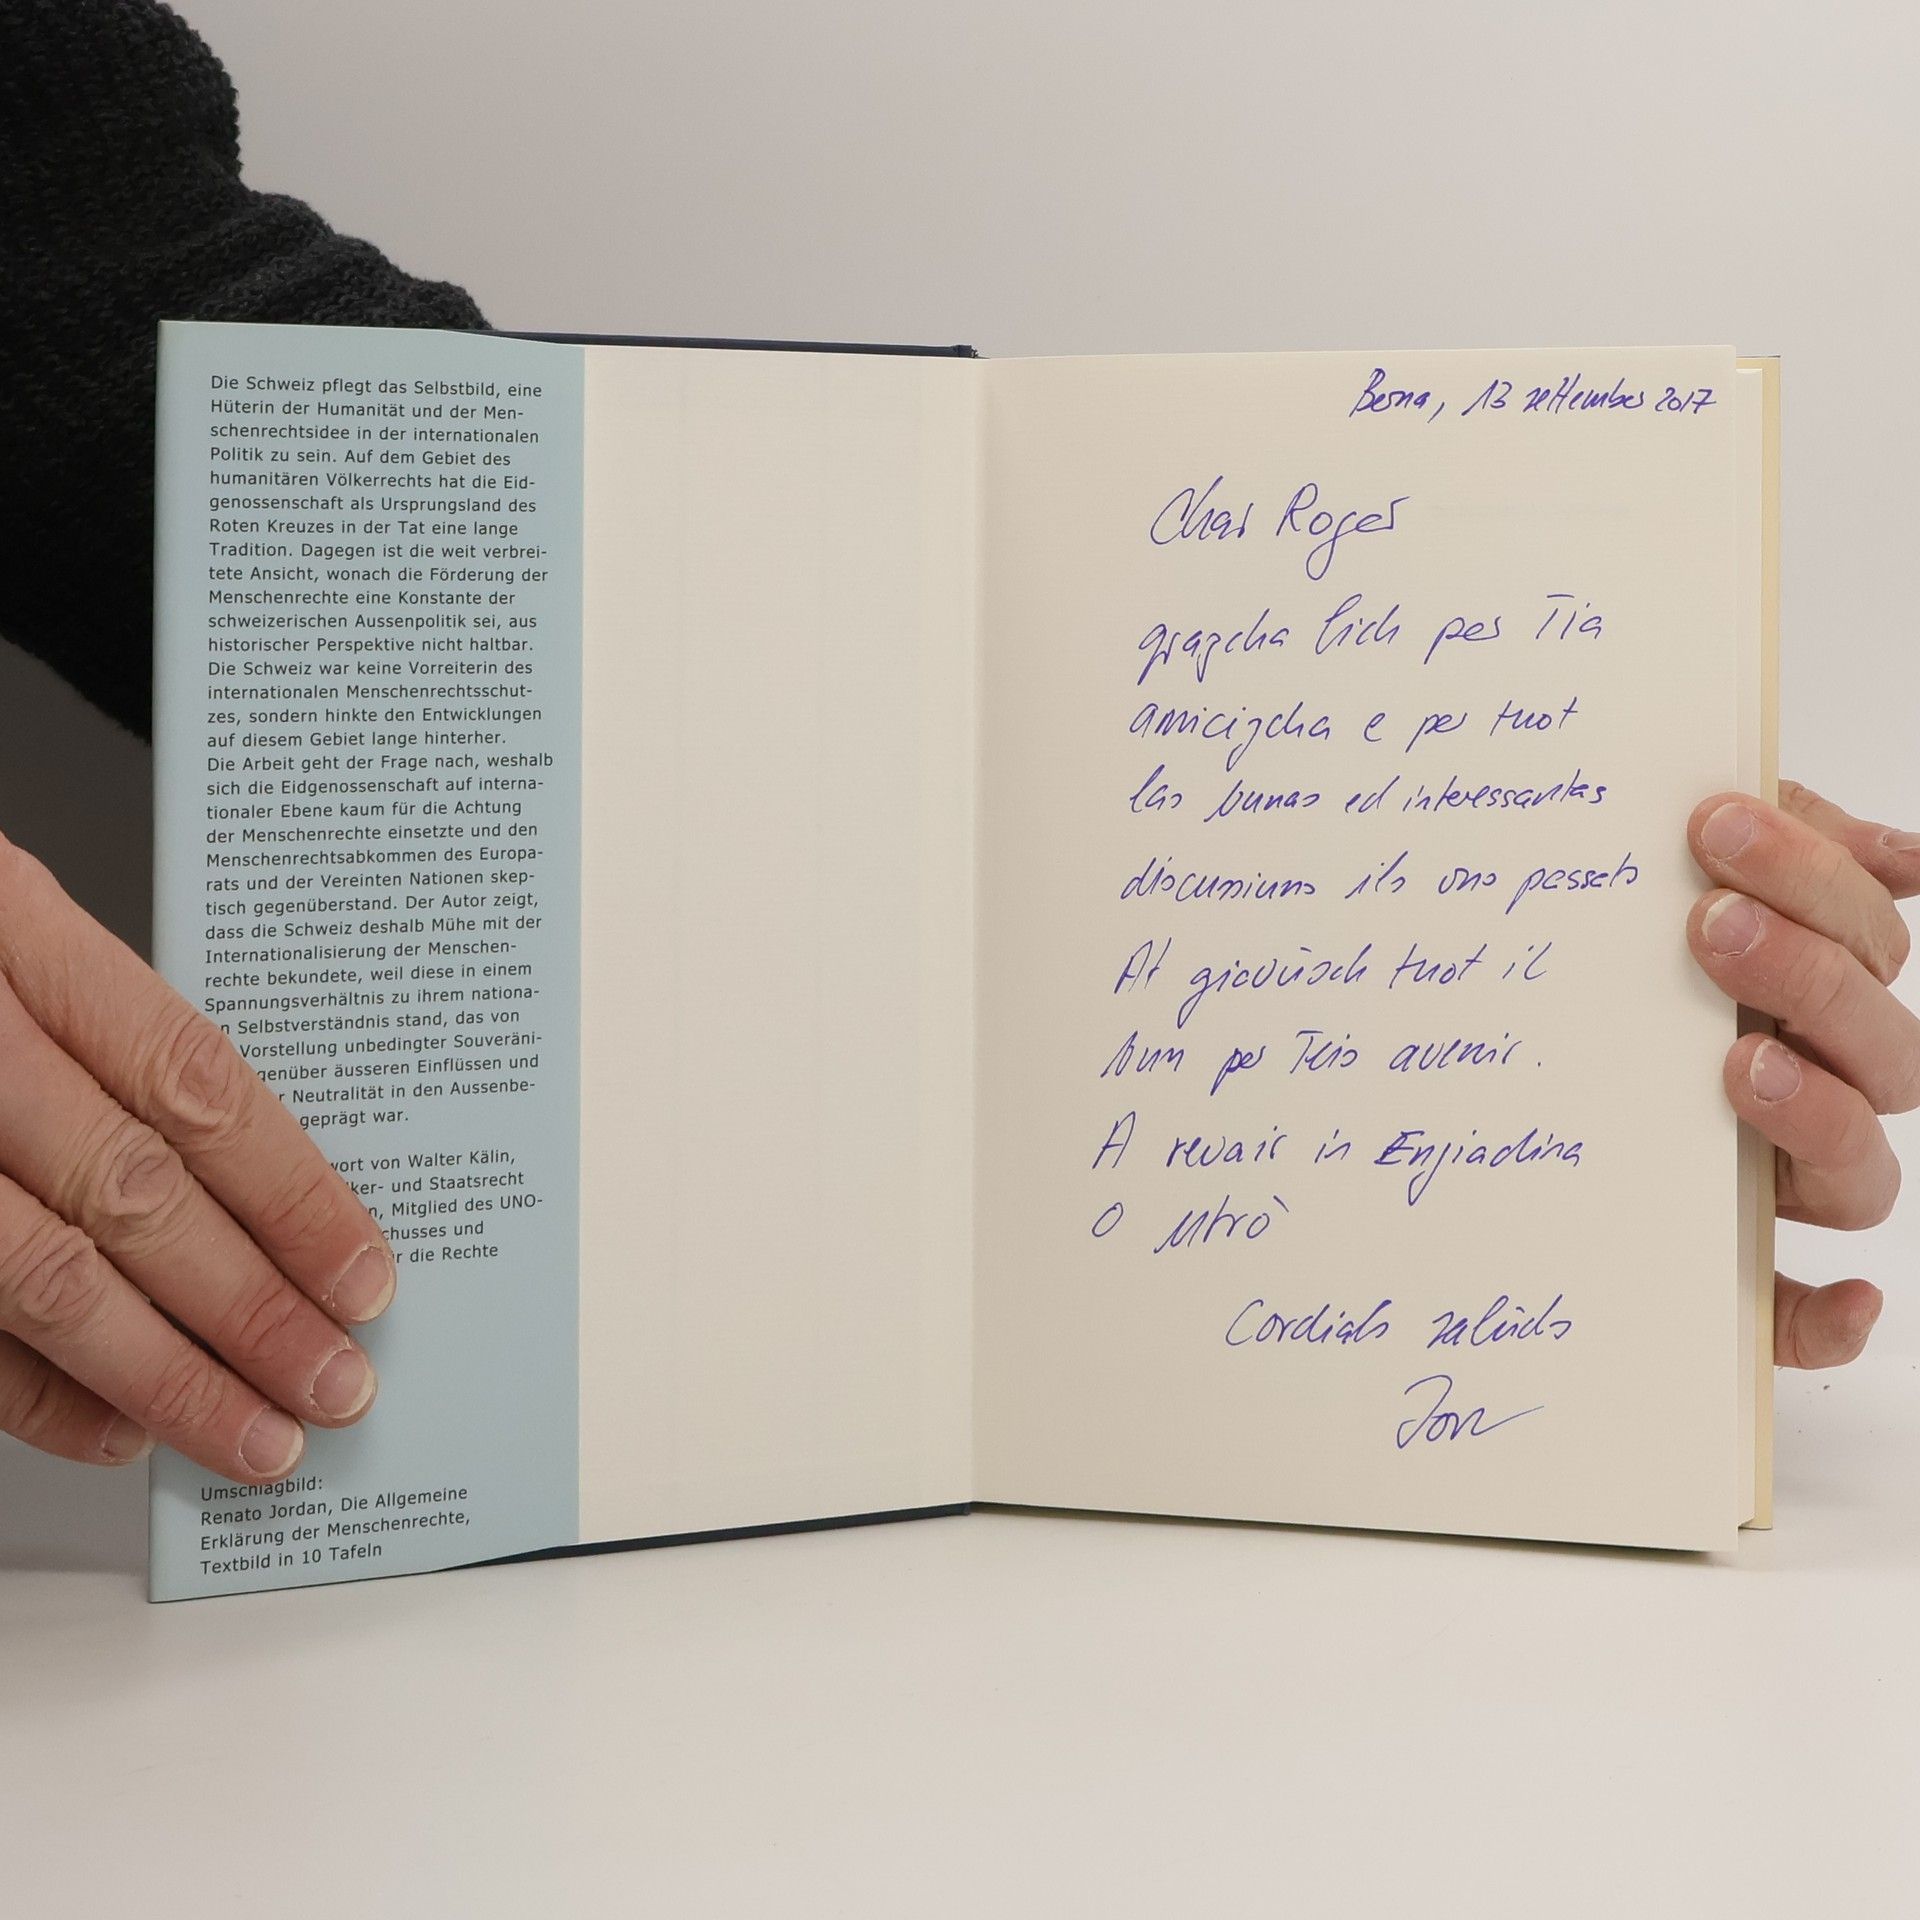 Die Schweiz pflegt das Selbstbild, eine
Hüterin der Humanität und der Men-
schenrechtsidee in der internationalen
Politik zu sein. Auf dem Gebiet des
humanitären Völkerrechts hat die Eid-
genossenschaft als Ursprungsland des
Roten Kreuzes in der Tat eine lange
Tradition. Dagegen ist die weit verbrei-
tete Ansicht, wonach die Förderung der
Menschenrechte eine Konstante der
schweizerischen Aussenpolitik sei, aus
historischer Perspektive nicht haltbar.
Die Schweiz war keine Vorreiterin des
internationalen Menschenrechtsschut-
zes, sondern hinkte den Entwicklungen
auf diesem Gebiet lange hinterher.
Die Arbeit geht der Frage nach, weshalb
sich die Eidgenossenschaft auf interna-
tionaler Ebene kaum für die Achtung
der Menschenrechte einsetzte und den
Menschenrechtsabkommen des Europa-
rats und der Vereinten Nationen skep-
tisch gegenüberstand. Der Autor zeigt,
dass die Schweiz deshalb Mühe mit der
Internationalisierung der Menschen-
rechte bekundete, weil diese in einem
Spannungsverhältnis zu ihrem nationa-
n Selbstverständnis stand, das von
Vorstellung unbedingter Souveräni-
genüber äusseren Einflüssen und
r Neutralität in den Aussenbe-
geprägt war.
wort von Walter Kälin,
ker- und Staatsrecht
n, Mitglied des UNO-
chusses und
r die Rechte
Umschlagbild:
Renato Jordan, Die Allgemeine
Erklärung der Menschenrechte,
Textbild in 10 Tafeln
Berna, 13 settember 2017
Char Roger
grazcha fich per Tia
amicizcha e per tuot
las bunas ed interessantas
discussiuns ils ons passats
At giavüsch tuot il
bun per Teis avenir.
A revair in Engiadina
o utrò
Cordials salüds
Jon